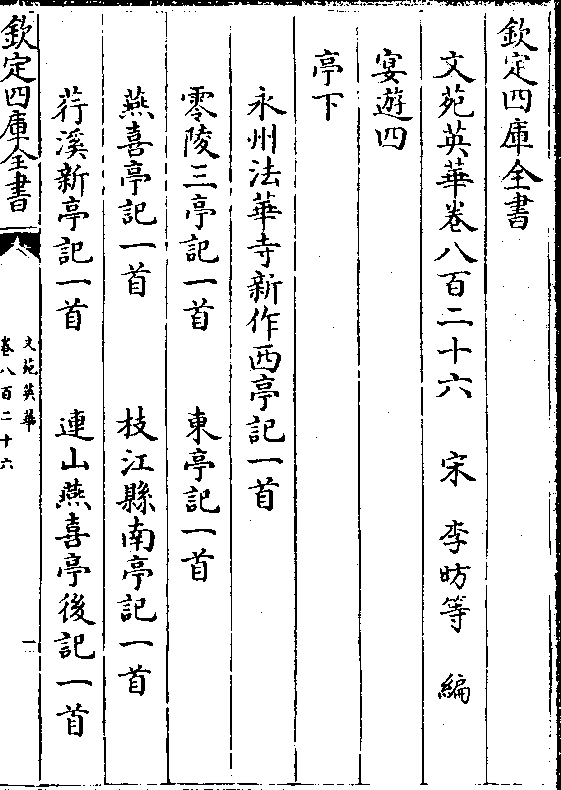 欽定四庫全書
文苑英華卷八百二十六 宋 李昉等 編
宴遊四
亭下
永州法華寺新作西亭記一首
零陵三亭記一首 東亭記一首
燕喜亭記一首 枝江縣南亭記一首
荇溪新亭記一首 連山燕喜亭後記一首
欽定四庫全書
文苑英華
卷八百二十六
一